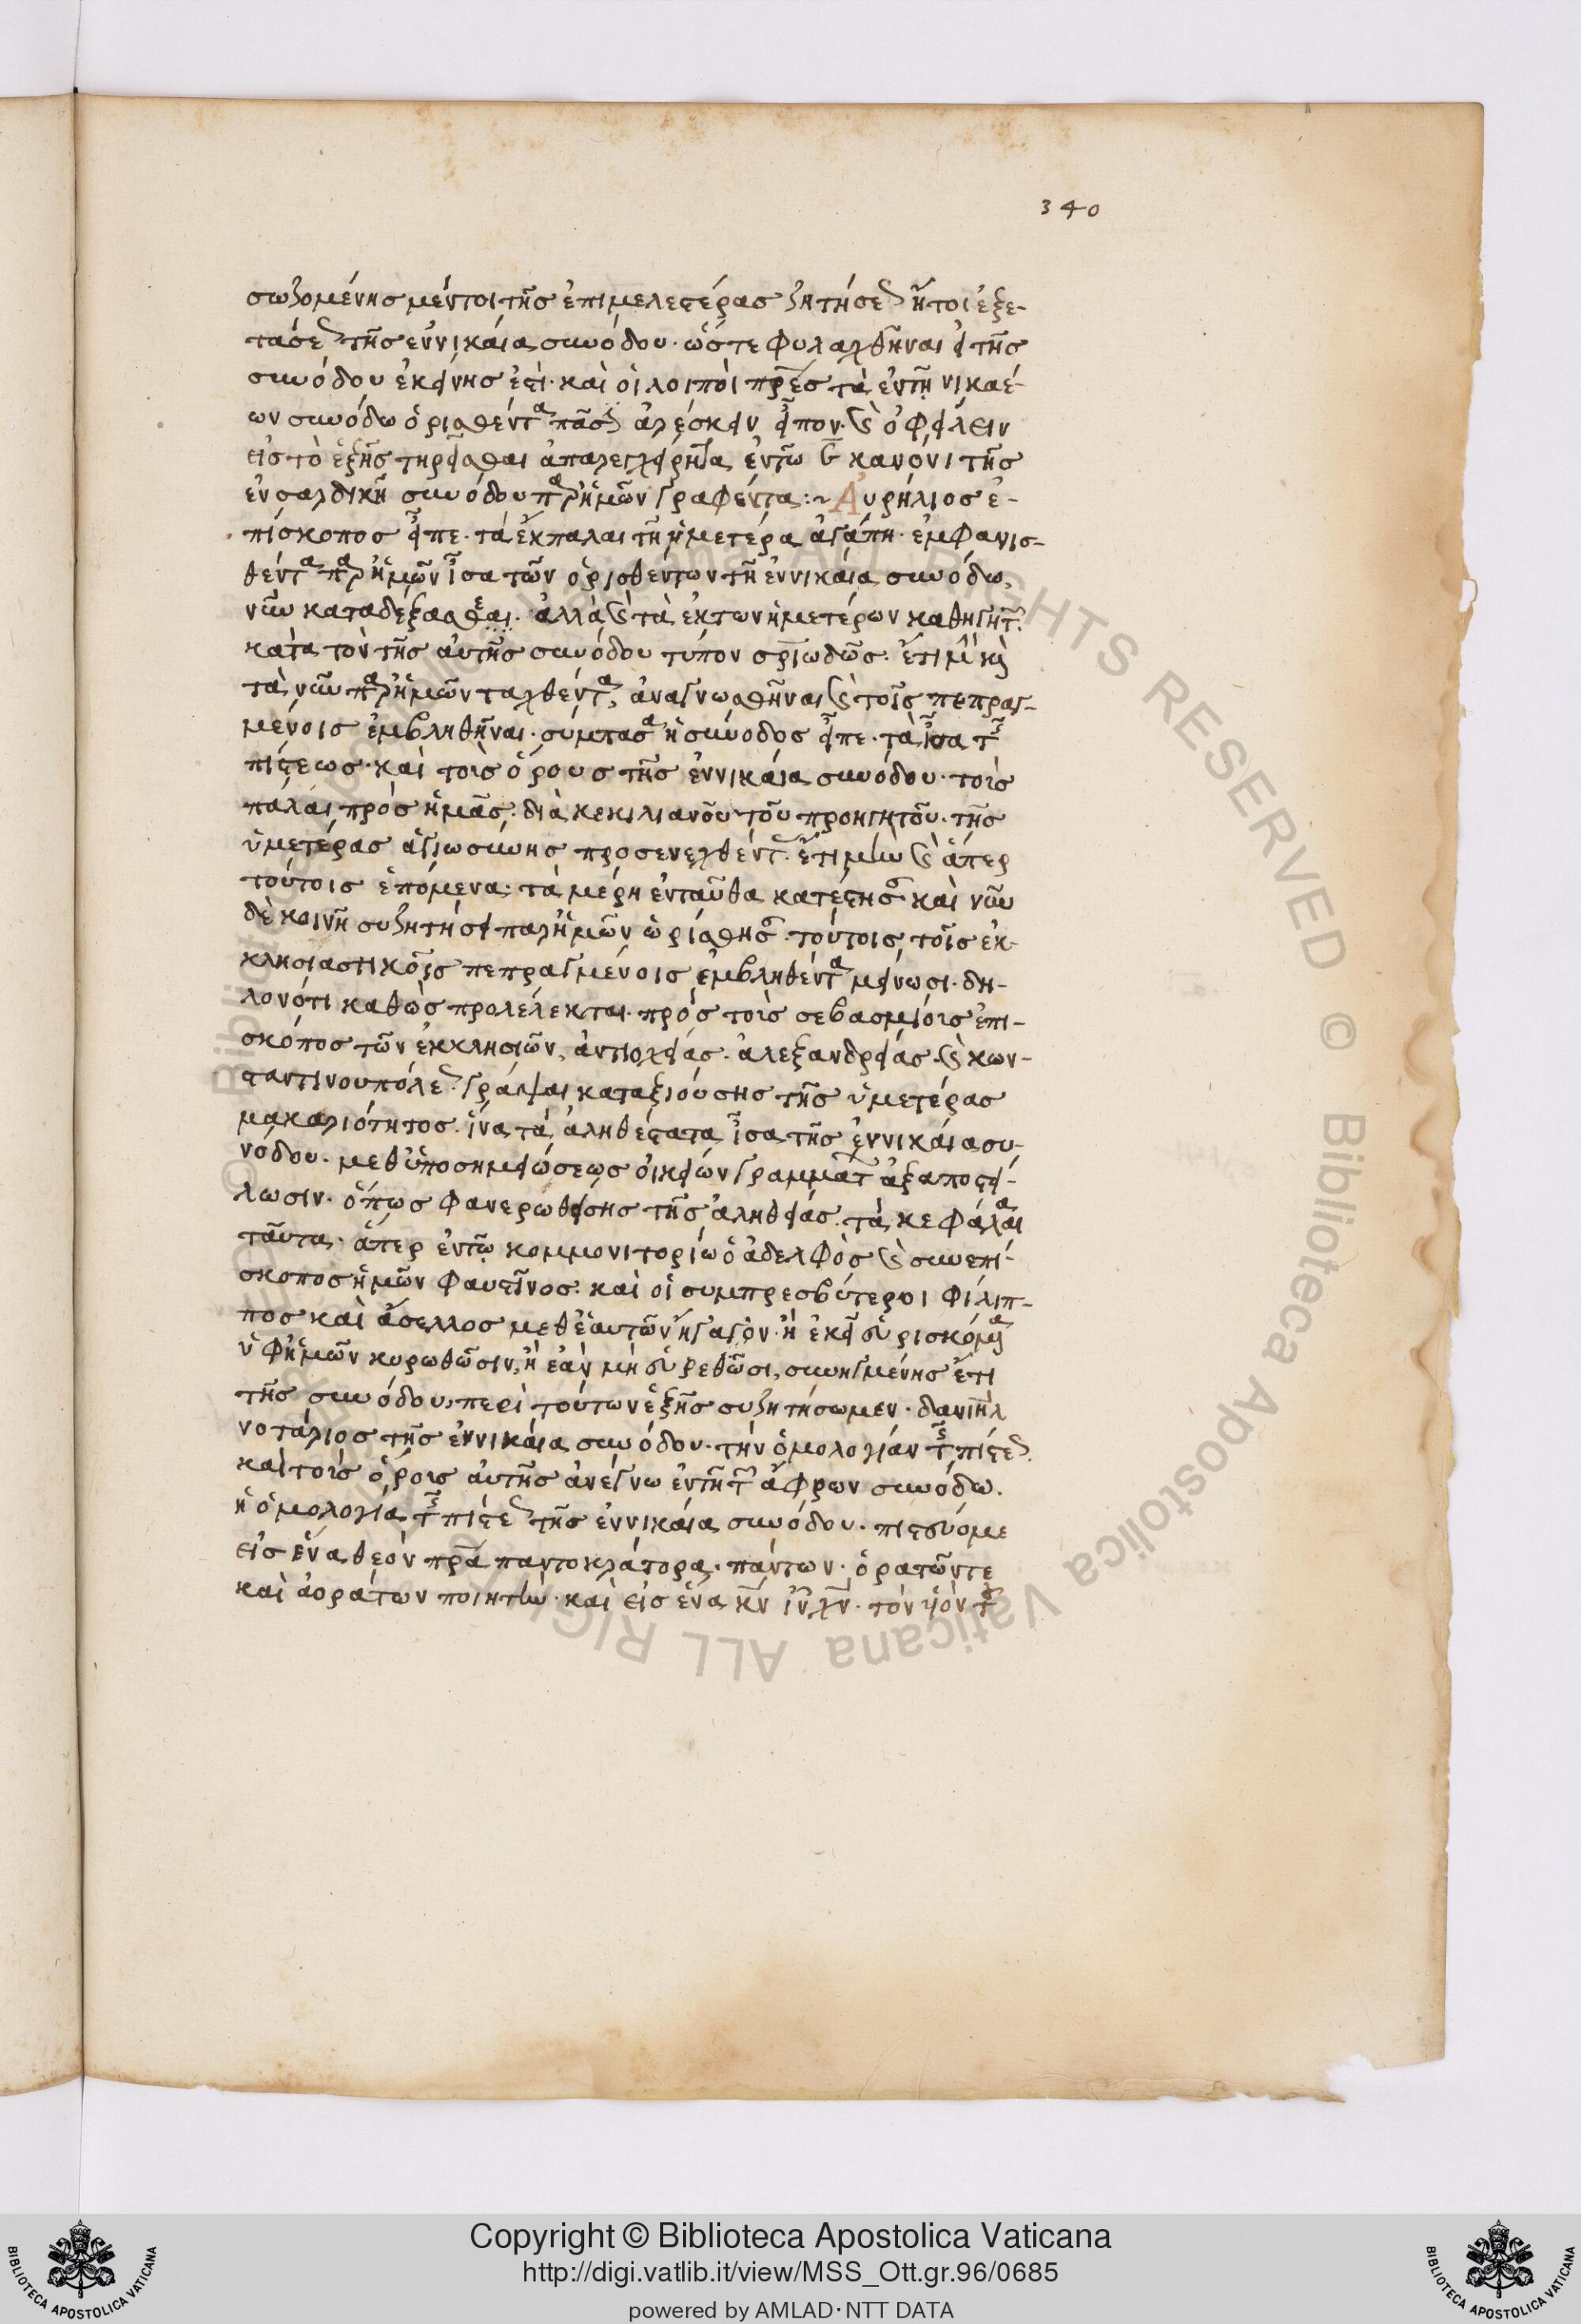 340
σωζομένης μέντοι τῆς ἐπιμελεστέρας ζητήσε ἤτοι ἐξε-
τάσε τῆς ἐν νικαία συνόδου. ὥστε φυλαχθῆναι εἰ τῆς
συνόδου ἐκείνης ἐστί. καὶ οἱ λοιποὶ πρ̅ες τὰ ἐν τῆ νικαέ-
ων συνόδω ὁρισθέντα πᾶσι ἀρέσκειν εἶπον. καὶ ὀφείλειν
εἰς τὸ ἑξῆς τηρεῖσθαι ἐν τῶ κανόνι τῆς
ἐν σαρδικῆ συνόδου παρ' ἡμῶν γραφέντα :~ Αὐρήλιος ἐ-
πίσκοπος εἶπε. τὰ ἔκπαλαι τῆ ἡμετέρα ἀγάπη. ἐμφανισ-
θέντα παρ' ἡμῶν ἶσα τῶν ὁρισθέντων τῆ ἐν νικαία συνόδω,
νῦν καταδέξασθαι. ἀλλὰ καὶ τὰ ἐκ των ἡμετέρων καθηγητ
κατα τὸν τῆς αὐτῆς συνόδου τύπον ἔτι μὴν καὶ
τὰ νῦν παρ' ἡμῶν ταχθέντα, ἀναγνωσθῆναι καὶ τοῖς πεπραγ-
μένοις ἐμβληθῆναι. σύμπασα ἡ σύνοδος εἶπε. τὰ ἶσα τῆς
πίστεως. καὶ τοις ὁρους τῆς ἐν νικαία συνόδου. τοὶς
πάλαι πρὸς ἡμᾶς. διὰ κεκιλιανοῦ τοῦ προηγητοῦ. τῆς
ὑμετέρας ἁγιωσύνης προσενεχθέντ. ἔτι μὴν καὶ ἅπερ
τούτοις ἑπόμενα. τὰ μέρη ἐνταῦθα κατέστησ καὶ νῦν
δὲ κοινῆ συζητήσει παρ' ἡμῶν ὡρίσθησ. τούτοις τοῖς ἐκ-
κλησιαστικοῖς πεπραγμένοις ἐμβληθέντα μείνωσι. δη-
λονότι καθὼς προλέλεκται. πρὸς τοὶς σεβασμίοις ἐπι-
σκόπος τῶν ἐκκλησιῶν, ἀντιοχείας. ἀλεξανδρείας. καὶ κων-
σταντινουπόλε. γράψαι καταξιούσης τῆς ὑμετέρας
μακαριότητος. ἵνα τὰ ἀληθέστατα ἶσα τῆς ἐν νικαία συ-
νόδου. μεθ' ὑποσημειώσεως οἰκείων γραμμάτ ἐξαποστεί-
λωσιν. ὅπως φανερωθείσης τῆς ἀληθείας. τὰ κεφάλαια
ταῦτα. ἅπερ ἐν τῶ κομμονιτορίω ὁ ἀδελφὸς καὶ συνεπί-
σκοπος ἡμῶν φαυστῖνος. καὶ οἱ συμπρεσβύτεροι φίλιπ-
πος καὶ ἄσελλος μεθ' ἑαυτῶν ἤγαγον. ἢ ἐκεῖ εὑρισκόμενα
ὑφ' ἡμῶν κυρωθῶσιν, ἢ ἐὰν μὴ εὑρεθῶσι, συνηγμένης ἔτι
τῆς συνόδου, περὶ τούτων ἑξῆς συζητήσωμεν. δανιὴλ
νοτάριος τῆς ἐν νικαία συνόδου. τὴν ὁμολογίαν τῆς πίστε.
καὶ τοὶς ὅροις αὐτῆς ἀνέγνω ἐν τῆ τ ἄφρων συνόδω.
ἡ ὁμολογία τῆς πίστε τῆς ἐν νικαία συνόδου. πιστεύομε
εἰς ἕνα θεὸν πρ̅α παντοκράτορα. πάντων. ὁρατῶν τε
καὶ ἀοράτων ποιητὴν. καὶ εἰς ἕνα κ̅ν ι̅ν χ̅ν. τὸν υἱὸν τοῦ
Copyright © Biblioteca Apostolica Vaticana
http://digi.vatlib.it/view/MSS_Ott.gr.96/0685
powered by AMLAD·NTT DATA
BIBLIOTECA APOSTOLICA VATICANA
BIBLIOTECA APOSTOLICA VATICANA